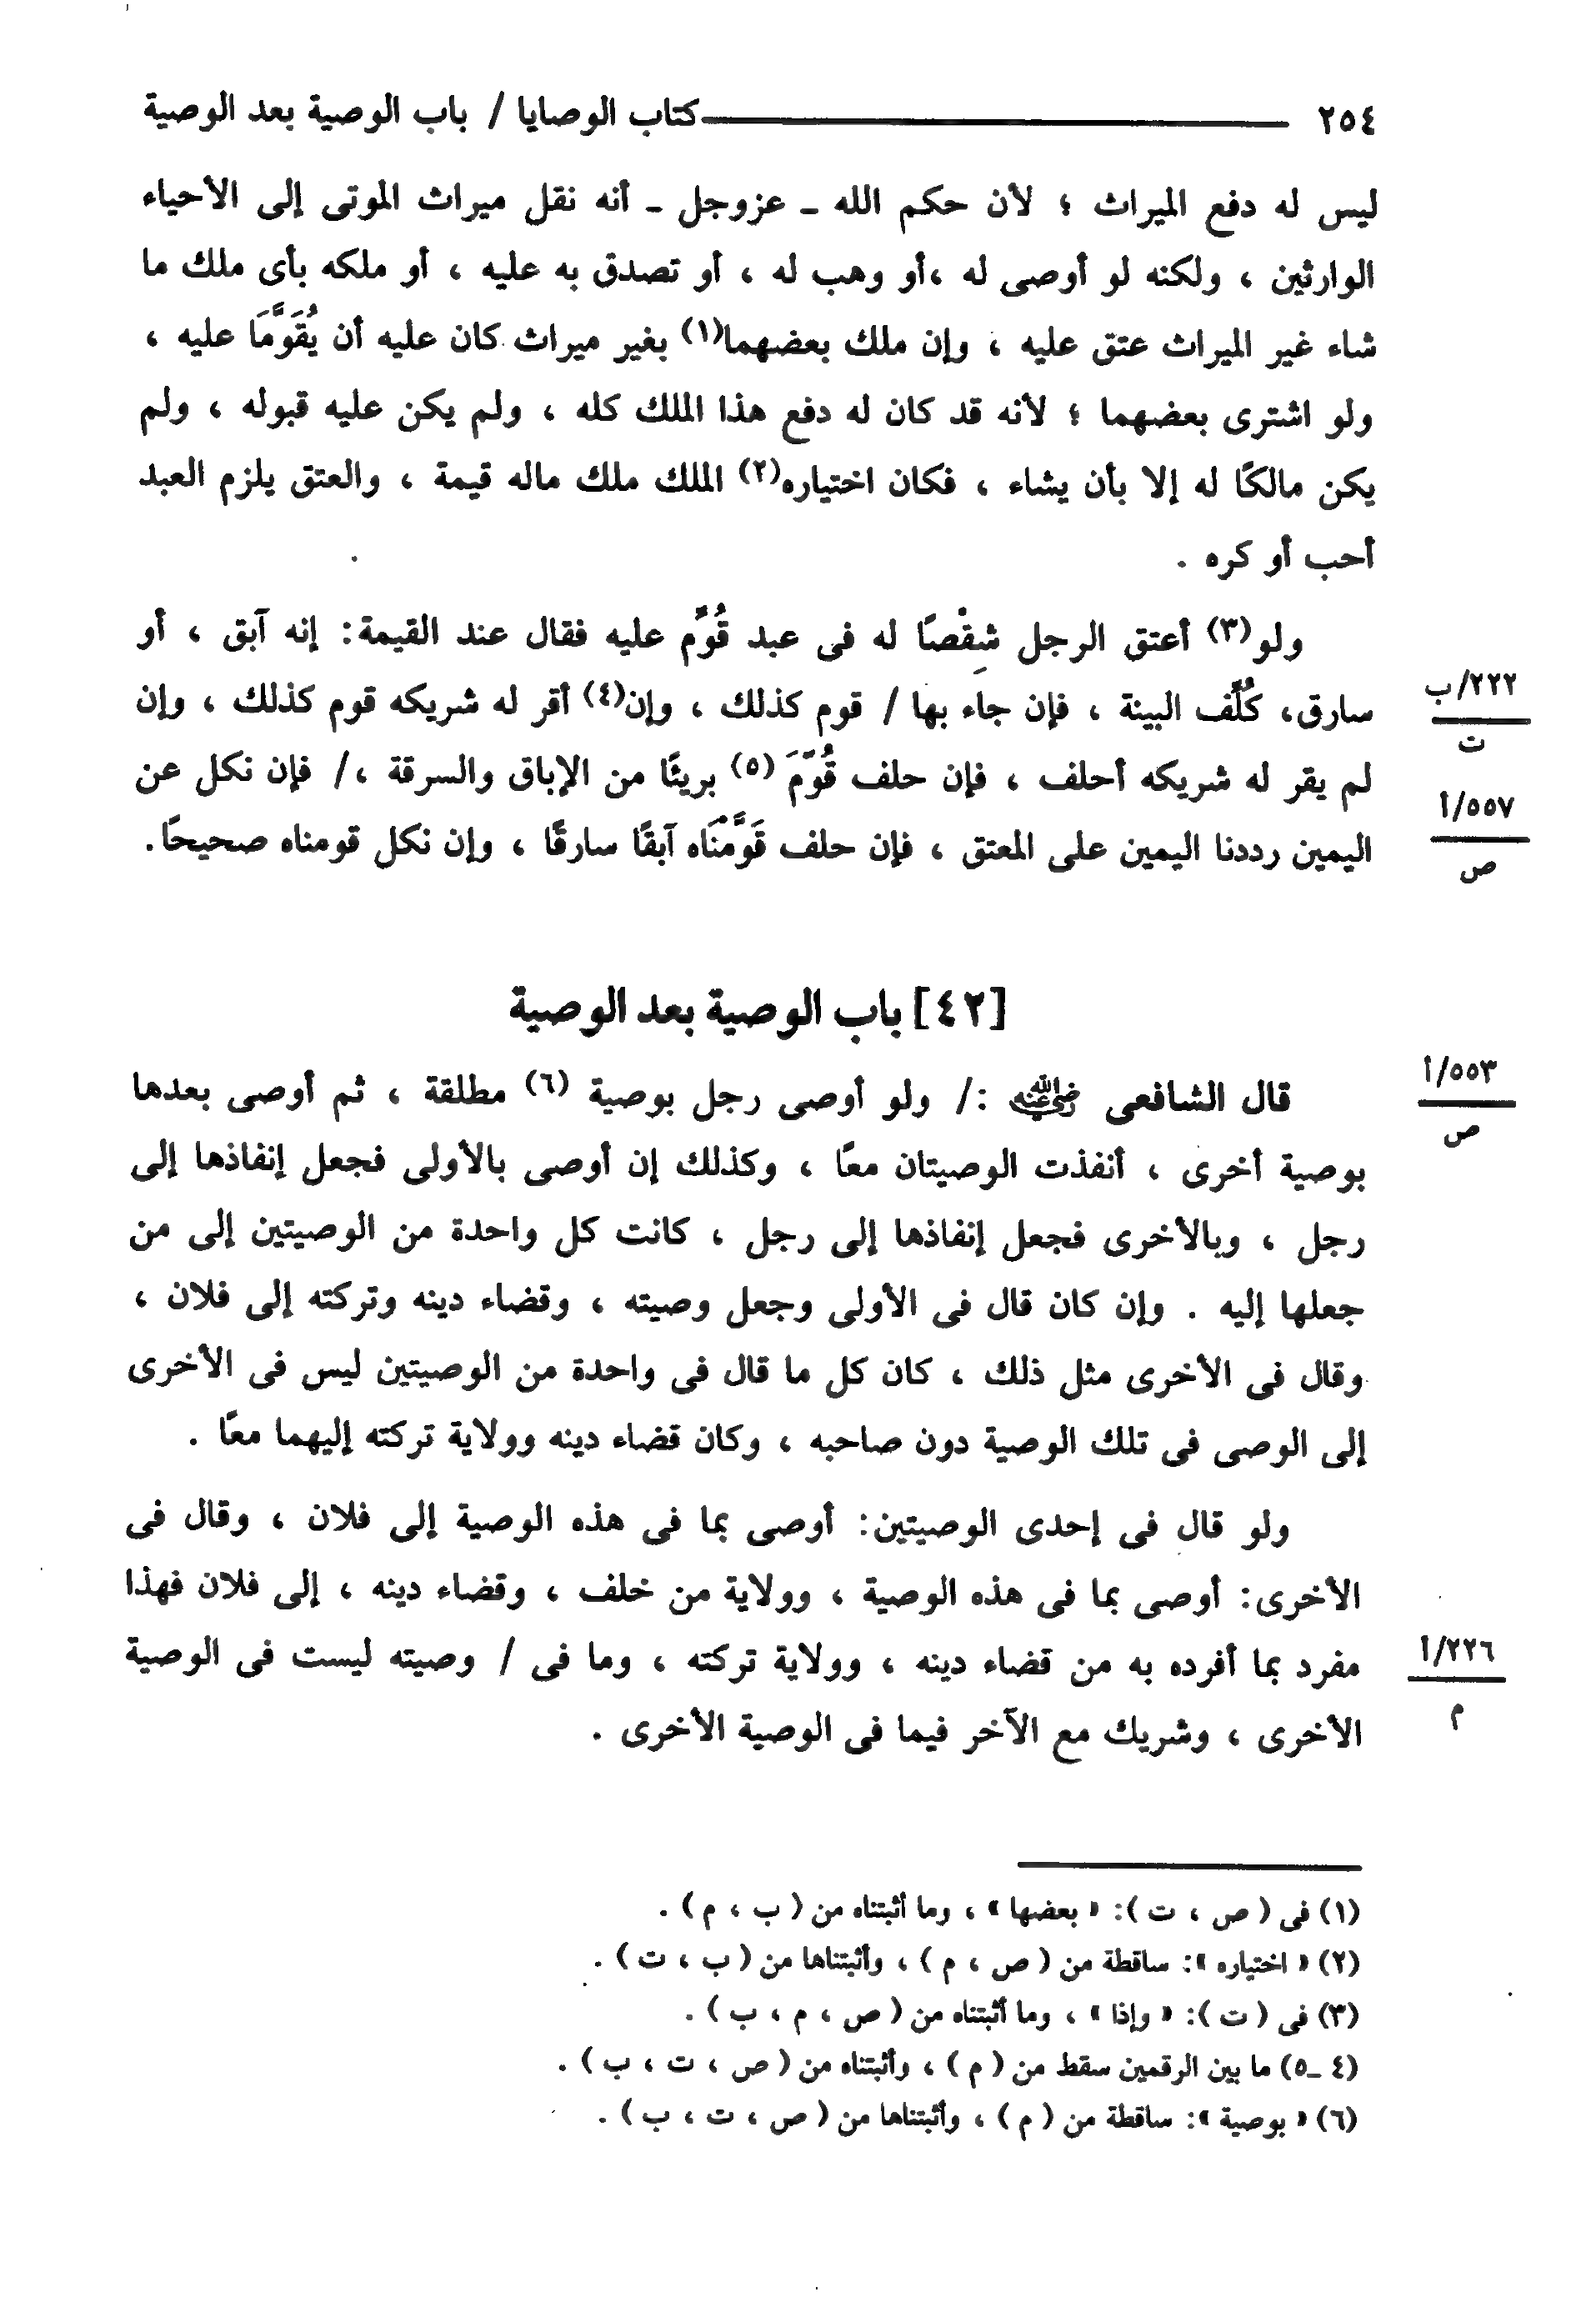 ٢٥٤ كتاب الوصايا / باب الوصية بعد الوصية
ليس له دفع الميراث ؛ لأن حكم الله ـ عزوجل ـ أنه نقل ميراث الموتى إلى الأحياء
الوارثين ، ولكنه لو أوصى له ،أو وهب له ، أو تصدق به عليه ، أو ملكه بأى ملك ما
شاء غير الميراث عتق عليه ، وإن ملك بعضهما(١) بغير ميراث كان عليه أن يُقَوَّمَا عليه ،
ولو اشترى بعضهما ؛ لأنه قد كان له دفع هذا الملك كله ، ولم يكن عليه قبوله ، ولم
يكن مالكًا له إلا بأن يشاء ، فكان اختياره(٢) الملك ملك ماله قيمة ، والعتق يلزم العبد
أحب أو كره .
ولو(٣) أعتق الرجل شِقْصًا له فى عبد قُوِّم عليه فقال عند القيمة: إنه آبق ، أو
سارق، كُلِّف البينة ، فإن جاء بها / قوم كذلك ، وإن(٤) أقر له شريكه قوم كذلك ، وإن
٢٢٢/ب
ت
لم يقر له شريكه أحلف ، فإن حلف قُوِّمَ (٥) بريئًا من الإباق والسرقة ،/ فإن نكل عن
٥٥٧/أ
ص
اليمين رددنا اليمين على المعتق ، فإن حلف قَوَّمْنَاه آبقًا سارقًا ، وإن نكل قومناه صحيحًا.
[٤٢] باب الوصية بعد الوصية
قال الشافعى رضي الله عنه :/ ولو أوصى رجل بوصية (٦) مطلقة ، ثم أوصى بعدها
٥٥٣/أ
ص
بوصية أخرى ، أنفذت الوصيتان معًا ، وكذلك إن أوصى بالأولى فجعل إنفاذها إلى
رجل ، وبالأخرى فجعل إنفاذها إلى رجل ، كانت كل واحدة من الوصيتين إلى من
جعلها إليه . وإن كان قال فى الأولى وجعل وصيته ، وقضاء دينه وتركته إلى فلان ،
وقال فى الأخرى مثل ذلك ، كان كل ما قال فى واحدة من الوصيتين ليس فى الأخرى
إلى الوصى فى تلك الوصية دون صاحبه ، وكان قضاء دينه وولاية تركته إليهما معًا .
ولو قال فى إحدى الوصيتين: أوصى بما فى هذه الوصية إلى فلان ، وقال فى
الأخرى: أوصى بما فى هذه الوصية ، وولاية من خلف ، وقضاء دينه ، إلى فلان فهذا
مفرد بما أفرده به من قضاء دينه ، وولاية تركته ، وما فى / وصيته ليست فى الوصية
٢٢٦/أ
م
الأخرى ، وشريك مع الآخر فيما فى الوصية الأخرى .
(١) فى ( ص ، ت ): « بعضها » ، وما أثبتناه من ( ب ، م ) .
(٢) « اختياره »: ساقطة من ( ص ، م ) ، وأثبتناها من ( ب ، ت ) .
(٣) فى ( ت ): « وإذا » ، وما أثبتناه من ( ص ، م ، ب ) .
(٤ ـ٥) ما بين الرقمين سقط من ( م ) ، وأثبتناه من ( ص ، ت ، ب ) .
(٦) « بوصية »: ساقطة من ( م ) ، وأثبتناها من ( ص ، ت ، ب ) .